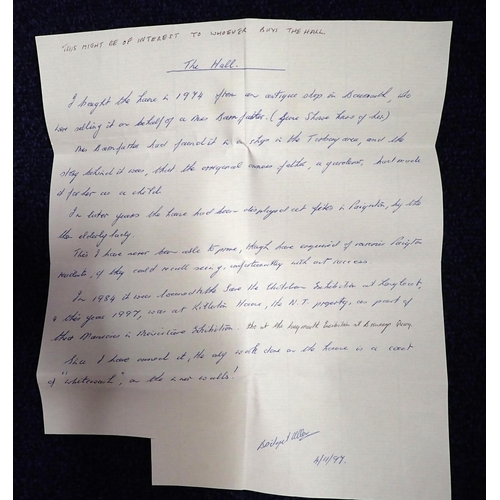 THIS MIGHT BE OF INTEREST TO WHOEVER BUYS THE HALL
The Hall.
I bought the house in 1974 from an antique shop in, who
were selling it on behalf of a Mrs Bairnfather. (
Mrs Bairnfather had found it in a shop in the Torbay area, and the
story behind it was, that the original owners father, a gardener, had made
it for her as a child.
In later years the house had been displayed at fetes in Paignton, by the
then elderly lady.
This I have never been able to prove, though have enquired of various Paignton
residents, if they could recall seeing, unfortunately with out success.
In 1984 it was loaned to the Save the Children Exhibition at Longleat,
& this year 1997, was at Killerton House, the N.T. property, as part of
their Mansions in Miniature Exhibition. also at the Exhibition at
Since I have owned it, the only work done on the house is a coat
of "whitewash", on the inner walls!
Bridget
4/11/97.